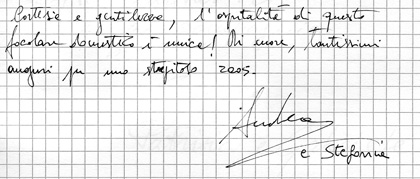 Cortesie e gentilezze, l'ospitalità di questo
focolare domestico è unica! Di cuore, tantissimi
auguri per uno strepitoso 2005.
Andrea
e Stefania